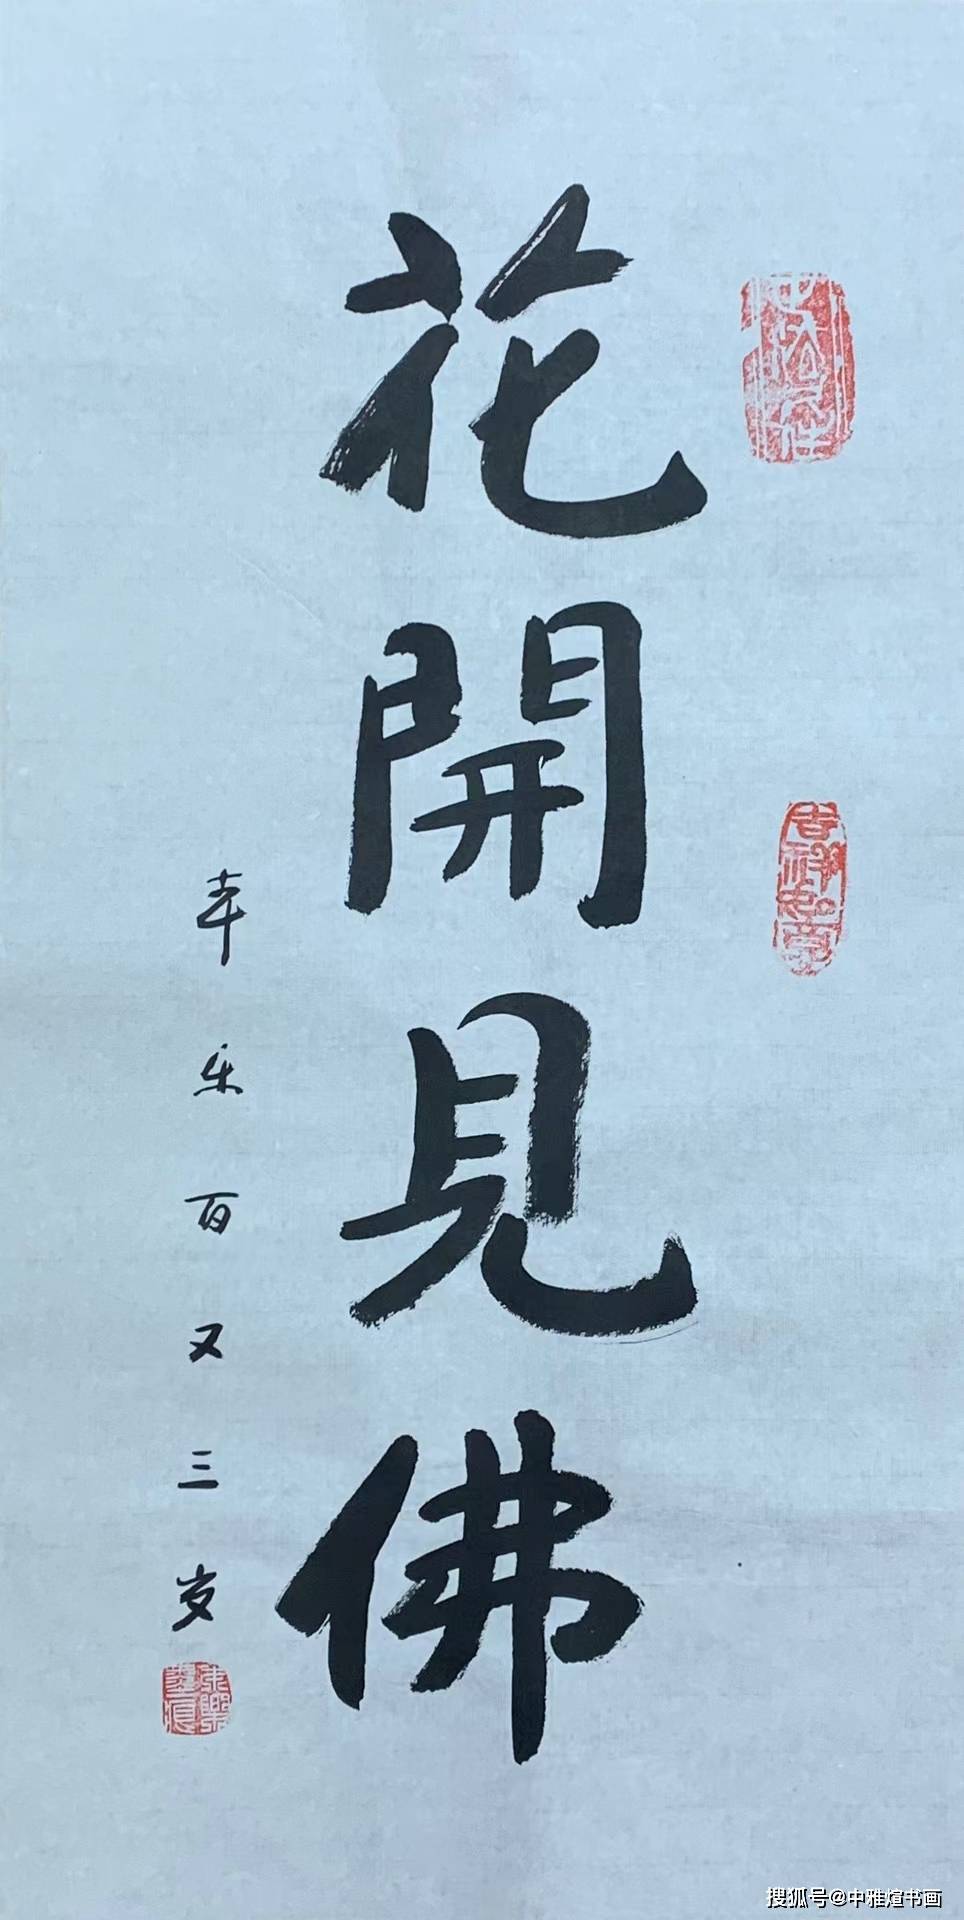 花開見佛
本乐百又三岁
吉祥如意
搜狐号@中雅煊书画